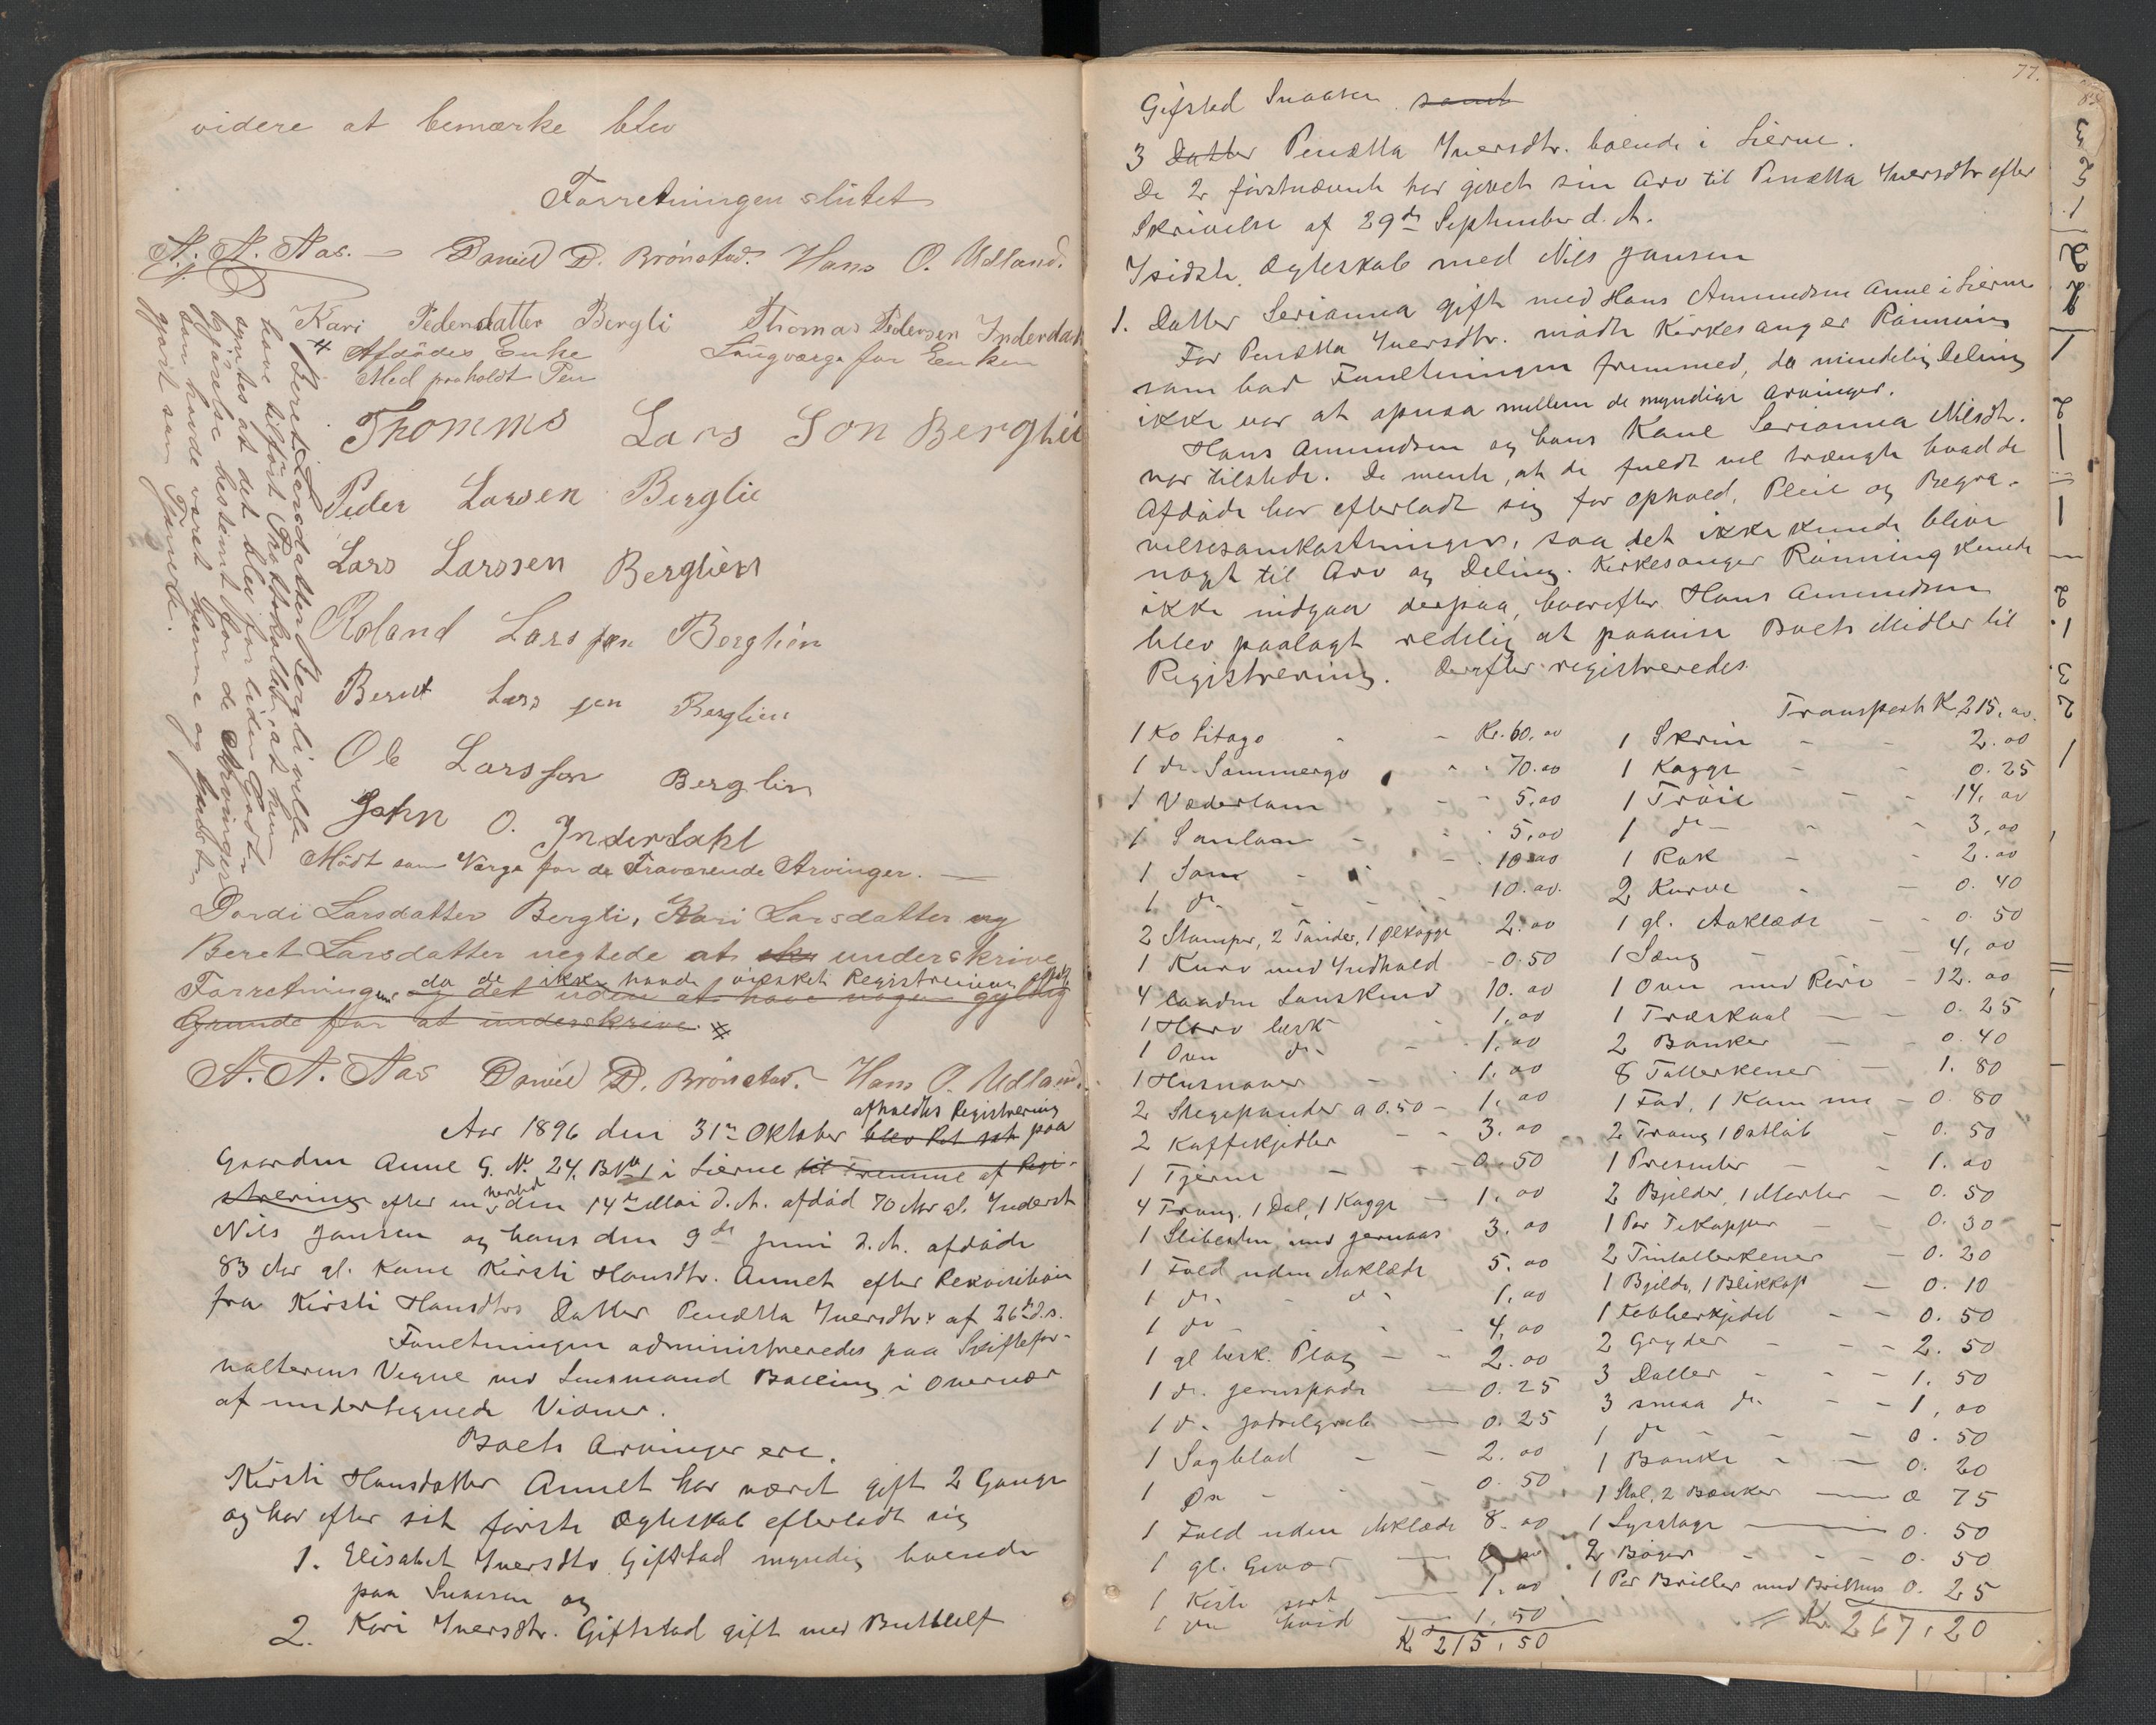 videre at bemærke blev
Forretningen slutet
A. A. Aas. — Daniel D. Brønstad. Hans O. Udland.
Kari Pedersdatter Bergli Thomas Pedersen Inderdahl
Afdødes Enke Laugværge for Enken
Med paaholdt Pen
Thommas Lars Son Berglie
Peder Larsen Berglie
Lars Larssen Berglien
Roland Larssen Berglien
Berent Larssen Berglien
Ole Larsson Berglin
John O. Inderdahl
Mødt som Værge for de Fraværende Arvinger. —
Beret Larsdatter Bergli vilde
have tilført Protokollen at hun
syntes at det blev for liden Godt-
gjørelse bestemt for de Arvinger
som havde været hjemme og
gjort som Tjeneste.
Dordi Larsdatter Bergli, Kari Larsdatter og
Beret Larsdatter negtede at underskrive
Forretningen, da de ikke havde ønsket Registrering
og det uden at have nogen gyldig
Grunde for at underskrive.
A. A. Aas Daniel D. Brønstad. — Hans O. Udland.
afholdtes Registrering
Aar 1896 den 31te Oktober blev Ret sat paa
Gaarden Anne G. No. 24, BNo 1 i Lierne til Fremme af Regi-
strering efter en den 14de Mai d. A. afdød 70 Aar gl. Inderst
Nils Jansen og hans den 9de Juni d. A. afdøde
83 Aar gl. Kone Kirsti Hansdtr. Annet efter Rekvisition
fra Kirsti Hansdtrs Datter Penætta Iversdtr. af 26de d.s.
Foretningen administreredes paa Skiftefor-
valterens Vegne ved Lensmand Balling i Overvær
af undertegnede Vidner.
Boets Arvinger ere.
Kirsti Hansdatter Annet har været gift 2 Gange
og har efter sit første Ægteskab efterladt sig
1. Elisabet Iversdtr Giftstad myndig boende
paa Snaasen og
2. Kari Iversdtr. Giftstad gift med
77.
Gifstad Snaasen. samt
3 Datter Penætta Iversdtr. boende i Lierne.
De 2 førstnævnte har givet sin Arv til Penætta Iversdtr efter
Skrivelse af 29de September d. A.
I sidste Ægteskab med Nils Jansen
1. Datter Serianna gift med Hans Amundsen Anne i Lierne
For Penætta Iversdtr. mødte Kirkesanger Rønning
som bad Foretningen fremmed, da mindelig Deling
ikke var at opnaa mellem de myndige Arvinger.
Hans Amundsen og hans Kone Serianna Nilsdtr.
var tilstede. De mente, at de fuldt vel trængte hvad de
Afdøde har efterladt sig for ophold, Pleie og Begra-
velsesomkostninger, saa det ikke kunde blive
noget til Arv og Deling. Kirkesanger Rønning kunde
ikke indgaa derpaa, hvorefter Hans Amundsen
blev paalagt redelig at paavise Boets Midler til
Registrering. Derefter registreredes.
1 Ko Litago - - Kr. 60.00
1 do. Sommergo - - 70.00
1 Væderlam - - 5.00
1 Saulam - - 5.00
1 Sau - - 10.00
1 do - - 10.00
2 Stamper, 2 Tønder, 1 Ølkagge 2.00
1 Kurv med Indhold - 0.50
4 laadne Sauskind 10.00
1 Harv besk - 1.00
1 Ovn do - 1.00
1 Husnaver - 1.00
2 Stegepander a 0.50 - 1.00
2 Kaffekjedler - - 3.00
1 Tjerne - - 0.50
4 Traug, 1 Dal, 1 Kagge - 1.00
1 Slibesten med Jernaas 3.00
1 Feld uden Aaklæde 5.00
1 do - do 1.00
1 do - - 4.00
1 gl besk. Plog - - 2.00
1 do. Jernspade - 0.25
1 do. - 0.25
1 Sagblad - - 2.00
1 Øx - - 0.50
1 Feld uden Aaklæde 8.00
1 gl. Gevær
1 Kiste sort - 1.00
1 do hvid - 1.50
K 215.50
Transport K 215.00.
1 Skrin - - 2.00
1 Kagge - - 0.25
1 Trøie - - 14.00
1 do - - 3.00
1 Rok - - 2.00
2 Kurve - - 0.40
1 gl. Aaklæde - - 0.50
1 Seng - - 4.00
1 Ovn med Rør - 12.00
1 Træskaal - - 0.25
2 Banker - - 0.40
8 Tallerkener - 1.80
1 Fad, 1 Kam mm - 0.80
2 Traug 1 Ostløb - 0.50
1 Presenter - - 1.00
2 Bjelder, 1 Morter - 0.50
1 Par Tekopper - - 0.30
2 Tintallerkener - 0.20
1 Bjelde, 1 Blikkop - 0.10
1 Febberkjedel - - 0.50
2 Gryder - - 2.50
3 Daller - - 1.50
3 smaa do - - 1.00
1 do - - 0.50
1 Banke - - 0.20
1 Stol, 2 Bænker - 0 75
1 Lysstage - 0.50
2 Bøger - - 0.50
1 Par Briller med Brilhus 0.25
= Kr 267,20